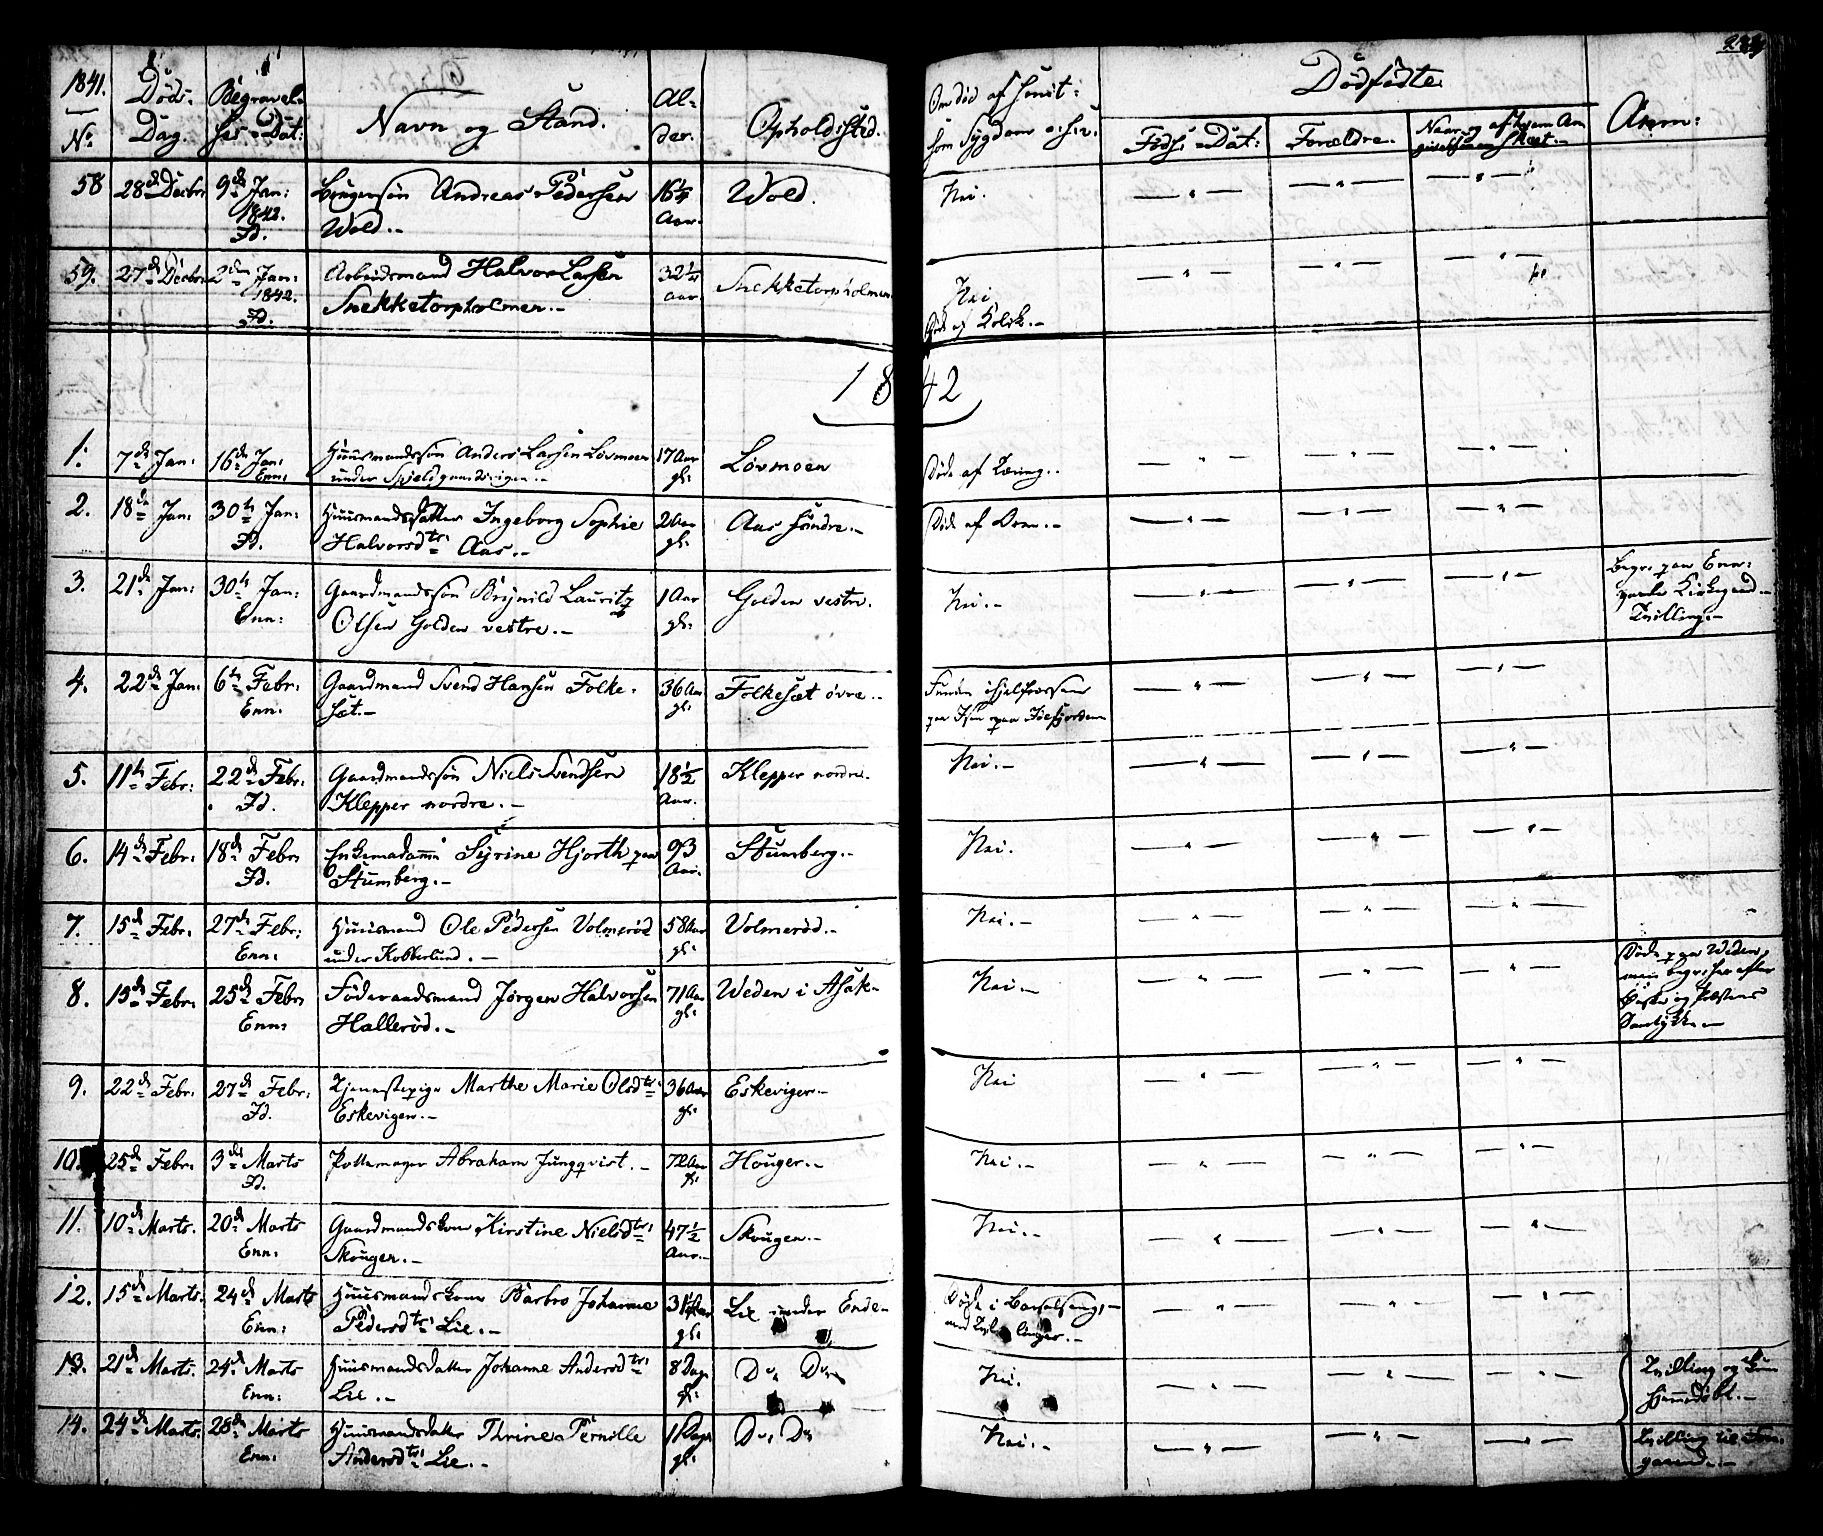 1841.
No
Döds-
Dag.
Begravel-
ses-Dat:
Navn og Stand.
Al-
der.
Opholdssted.
Om död af smit-
som Sygdom
Dödfödte
Föds: Dat:
Forældre.
Anm:
58 28de Decbr 9de Jan: 1842. Id.
Andreas Pedersen
Wold.-
16 1/4 Aar.
Wold.
Nei.
59. 27de Decbr 2den Jan: 1842. Id.
Arbeidsmand Halvor Larsen
Snekketorpholmen.-
32 1/4 Aar.
Snekketorpholmen
Nei
Död af Kolik.-
1842
1. 7de Jan: 16de Jan: Enn:
Huusmandssön Anders Larsen Lövmoen
under
17 Aar gl:
Lövmoen
Döde af Tæring.
2. 18de Jan: 30te Jan: Id.
Huusmandsdatter Ingeborg Sophie
Halvorsdtr: Aas.-
2 Aar gl:
Aas söndre.-
Död af Orm.-
3. 21de Jan: 30te Jan: Enn:
Gaardmandssön Brynild Lauritz
Olsen Golden vestre.-
1 Aar gl:
Golden vestre.
Nei.-
Begr: paa Enn-
Kirkegaard.-
Tvilling.-
4. 22de Jan: 6te Febr: Enn:
Gaardmand Svend Hansen Folke-
sæt.-
36 Aar gl:
Folkesæt övre.-
Funden ihjelfrossen
paa Isen paa
5. 11te Febr: 22de Febr: Id.
Gaardmandssön Niels Svendsen
Klepper nordre.-
18 1/2 Aar.
Klepper nordre.
Nei.-
6. 14de Febr: 18de Febr: Id.
Enkemadamm Syrine Hjorth paa
Stumberg.-
93 Aar.
Stumberg.-
Nei.
7. 15de Febr: 27de Febr: Enn:
Huusmand Ole Pedersen Volmeröd
under Kobberlund.-
58 Aar gl:
Volmeröd.-
Nei.-
8. 19de Febr: 25de Febr: Enn:
Föderaadsmand Jörgen Halvorsen
Halleröd.-
71 Aar gl:
Weden i Asak-
Nei.-
Döde paa Weden,
men begr: her efter
Önske og Præstens
Samtykke.-
9. 22de Febr: 27de Febr: Id.
Tjenestepige Marthe Marie Olsdtr:
Eskevigen.-
36 Aar gl:
Eskevigen.-
Nei
10. 25de Febr: 3die Marts Id.
Pottemager Abraham Jungqvist.-
72 Aar gl:
Houger.-
Nei.-
11. 10de Marts. 20de Marts Enn:
Gaardmandskone Kirstine Nielsdtr:
Skougen.-
47 1/2 Aar.-
Skougen.-
Nei.-
12. 15de Marts. 24de Marts Enn:
Huusmandskone Barbro Johanne
Pedersdtr: Lie.-
gl:
Lie under Ende-
Döde i Barselseng,
med Tvillinger.-
13. 21de Marts. 24de Marts Enn:
Huusmandsdatter Johanne Andersdtr:
Lie.-
8 Dage gl:
Do Do
Nei.
Tvilling og kun
hjemmedöbt.-
14. 24de Marts. 28de Marts Enn:
Huusmandsdatter Thrine Pernille
Andersdtr: Lie.-
gl:
Do Do
Nei.-
Tvilling til